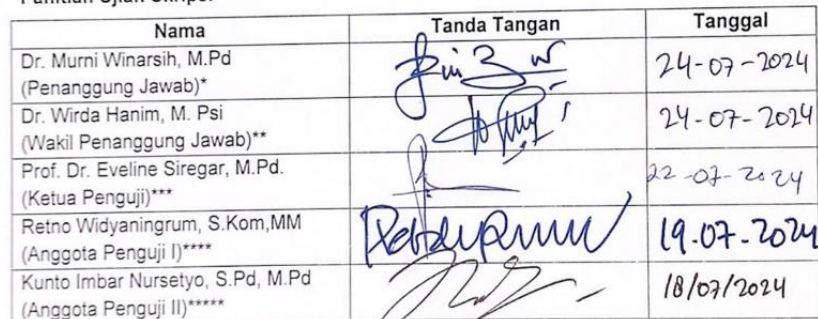 Nama Tanda Tangan Tanggal
Dr. Murni Winarsih, M.Pd
(Penanggung Jawab)*
24-07-2024
Dr. Wirda Hanim, M. Psi
(Wakil Penanggung Jawab)**
24-07-2024
Prof. Dr. Eveline Siregar, M.Pd.
(Ketua Penguji)***
22-07-2024
Retno Widyaningrum, S.Kom,MM
(Anggota Penguji I)****
19.07.2024
Kunto Imbar Nursetyo, S.Pd, M.Pd
(Anggota Penguji II)*****
18/07/2024